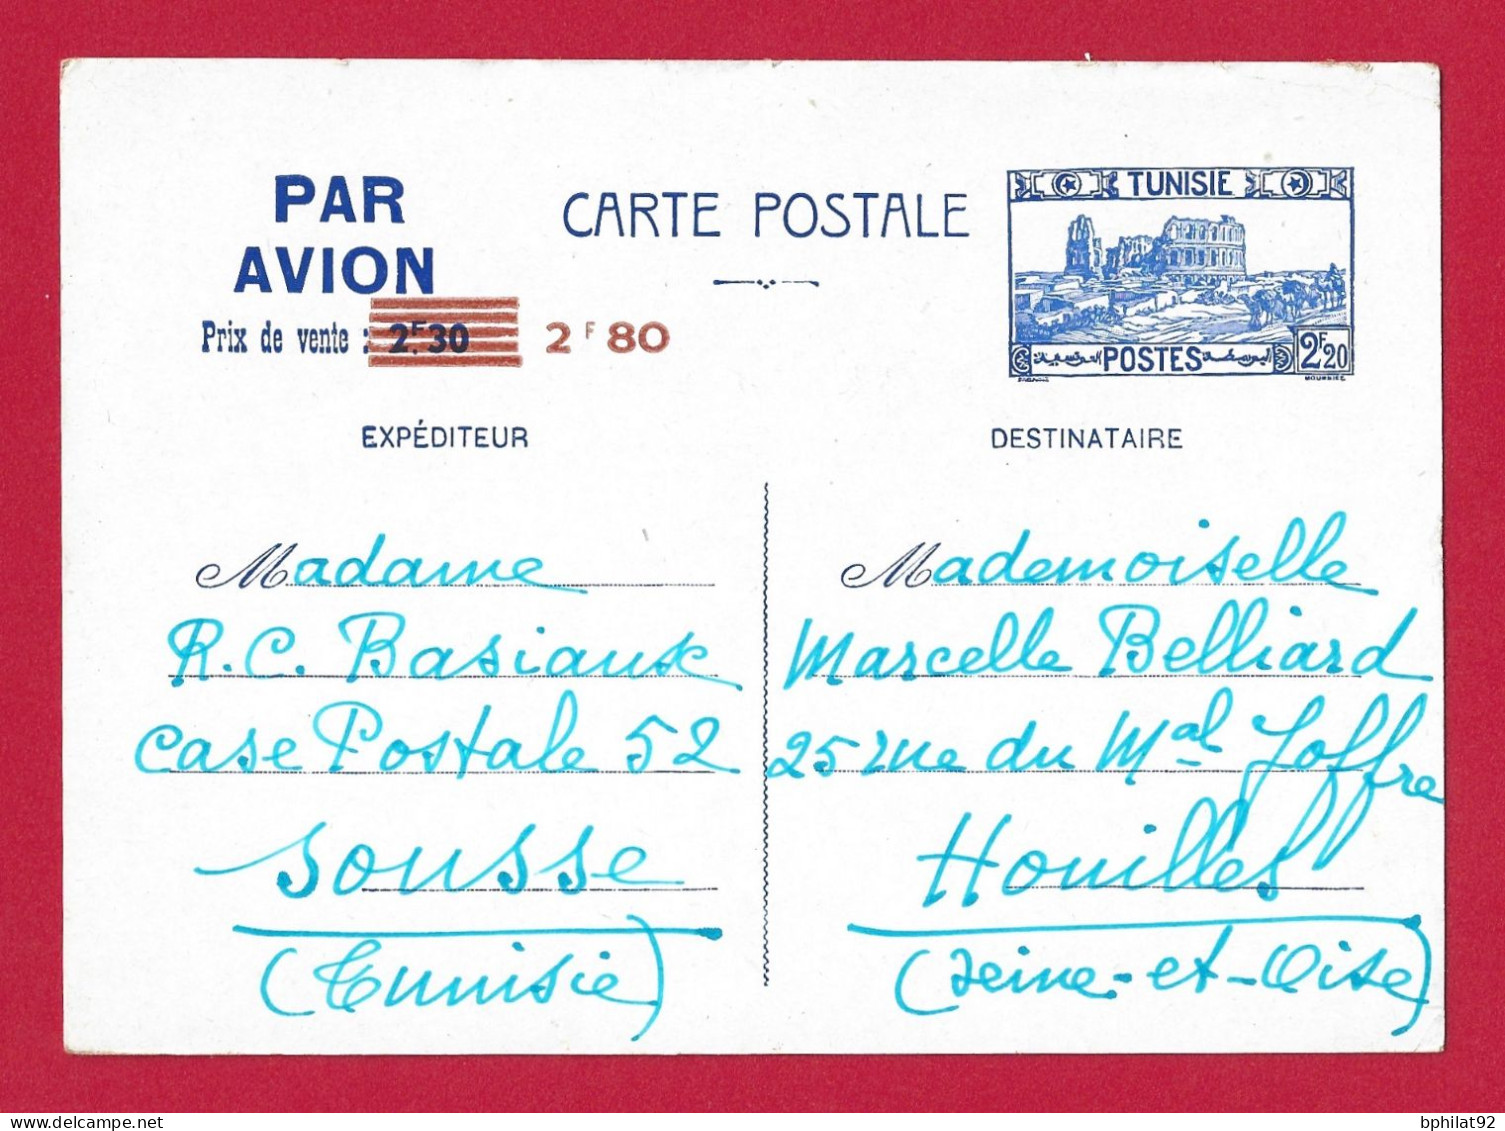 PAR
AVION
CARTE POSTALE
TUNISIE
POSTES
2F20
Prix de vente : 2F.30
2F80
EXPÉDITEUR
Madame
R.C. Basiaux
Case Postale 52
Sousse
(Tunisie)
DESTINATAIRE
Mademoiselle
Marcelle Belliard
25 rue du Mal Joffre
Houilles
(Seine-et-Oise)
bphilat92